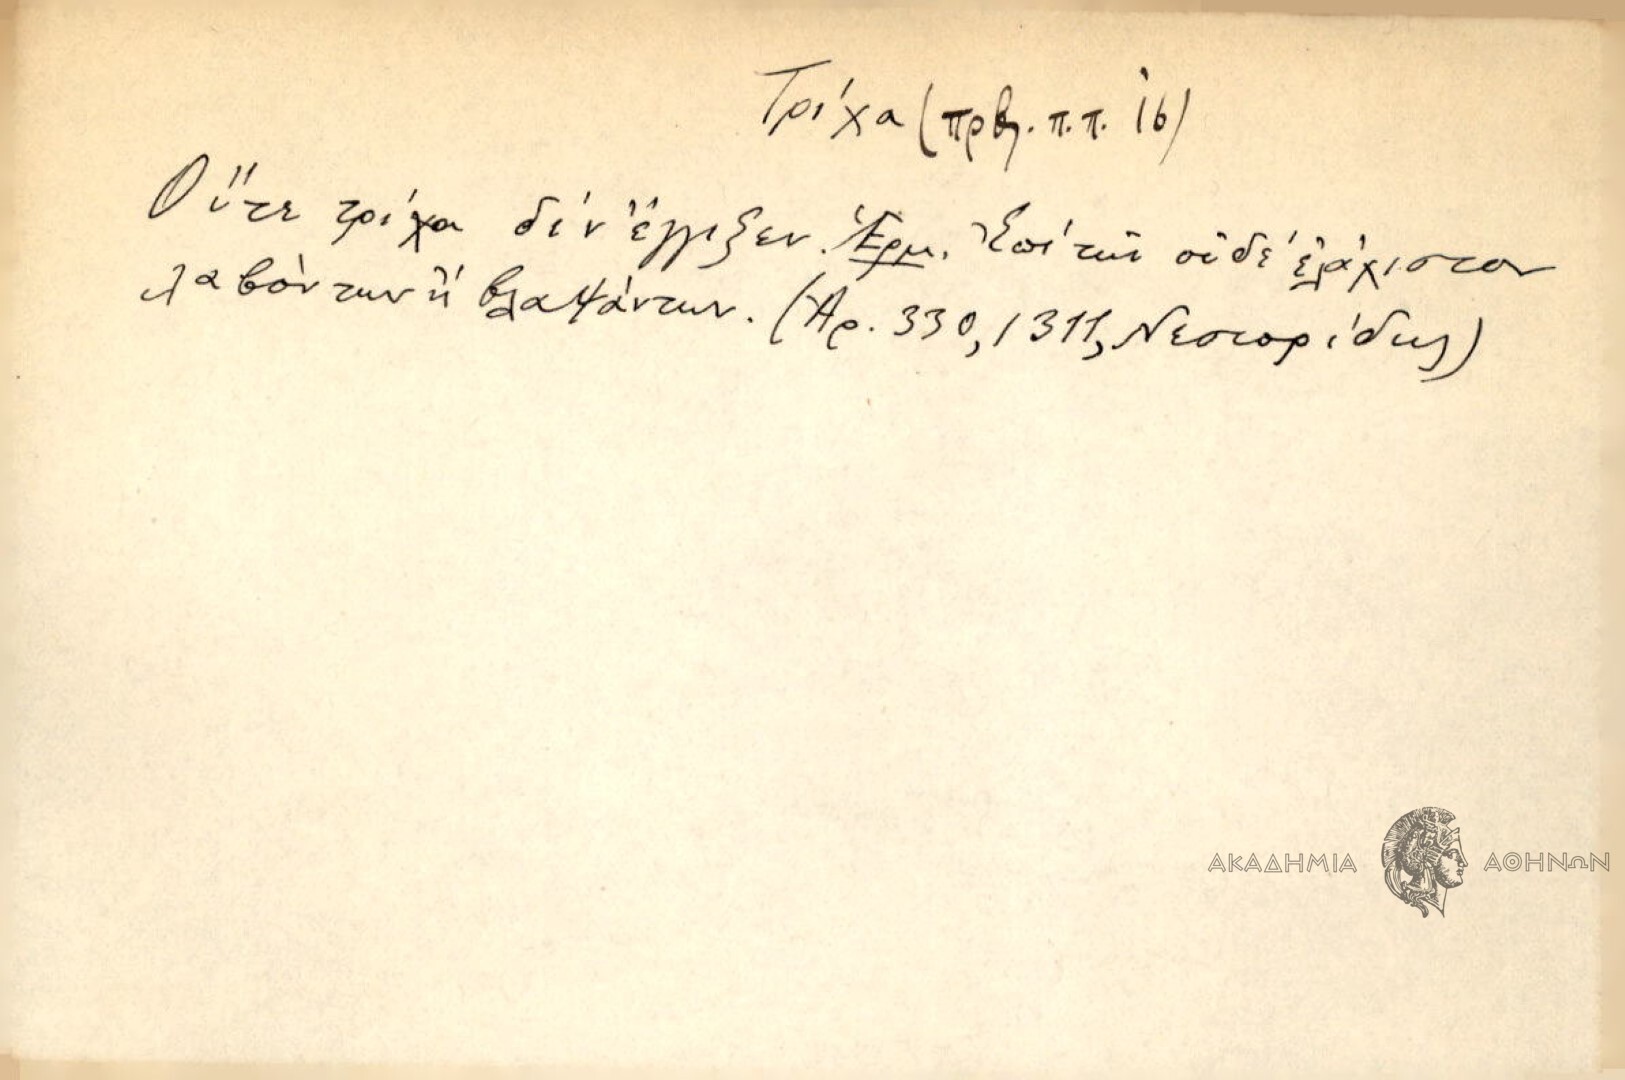 Τρίχα (πρβλ. π.π. 16)
Οὔτε τρίχα δέν ἔγγιξεν. Ἑρμ. Ἐπί τῶν οὐδέ ἐλάχιστον
λαβόντων ἤ βλαψάντων. (Ἀρ. 330, 1311, Νεστορίδης)
ΑΚΑΔΗΜΙΑ ΑΘΗΝΩΝ